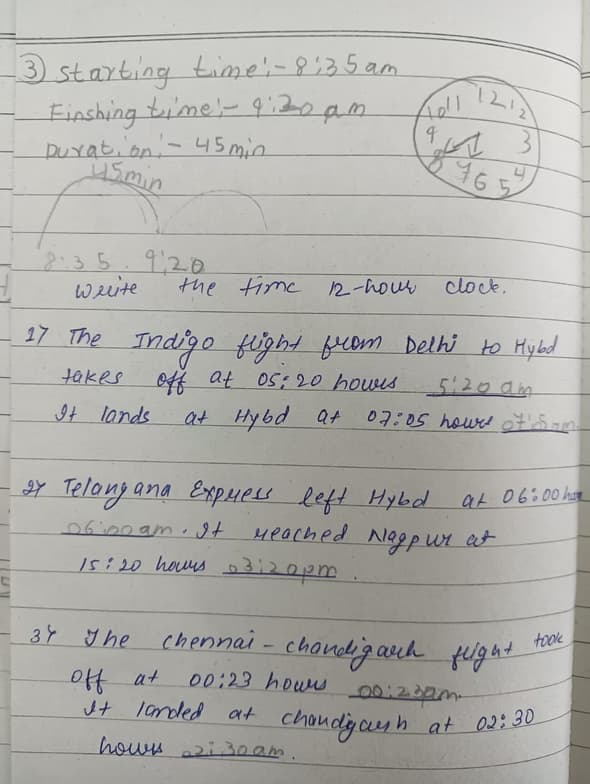 3) starting time:- 8:35 am
Finshing time:- 9:20 am
Duration:- 45 min
11 12 1 2
10
9 3
8 7 6 5 4
45 min
8:35. 9:20
Write the time 12-hour clock.
1) The Indigo flight from Delhi to Hybd
takes off at 05:20 hours 5:20 am
It lands at Hybd at 07:05 hours
2) Telangana Express left Hybd at 06:00
06:00 am. It reached Nagpur at
15:20 hours 03:20pm.
3) The chennai-chandigarh flight took
off at 00:23 hours
It landed at chandigarh at 02:30
hours 02:30am.